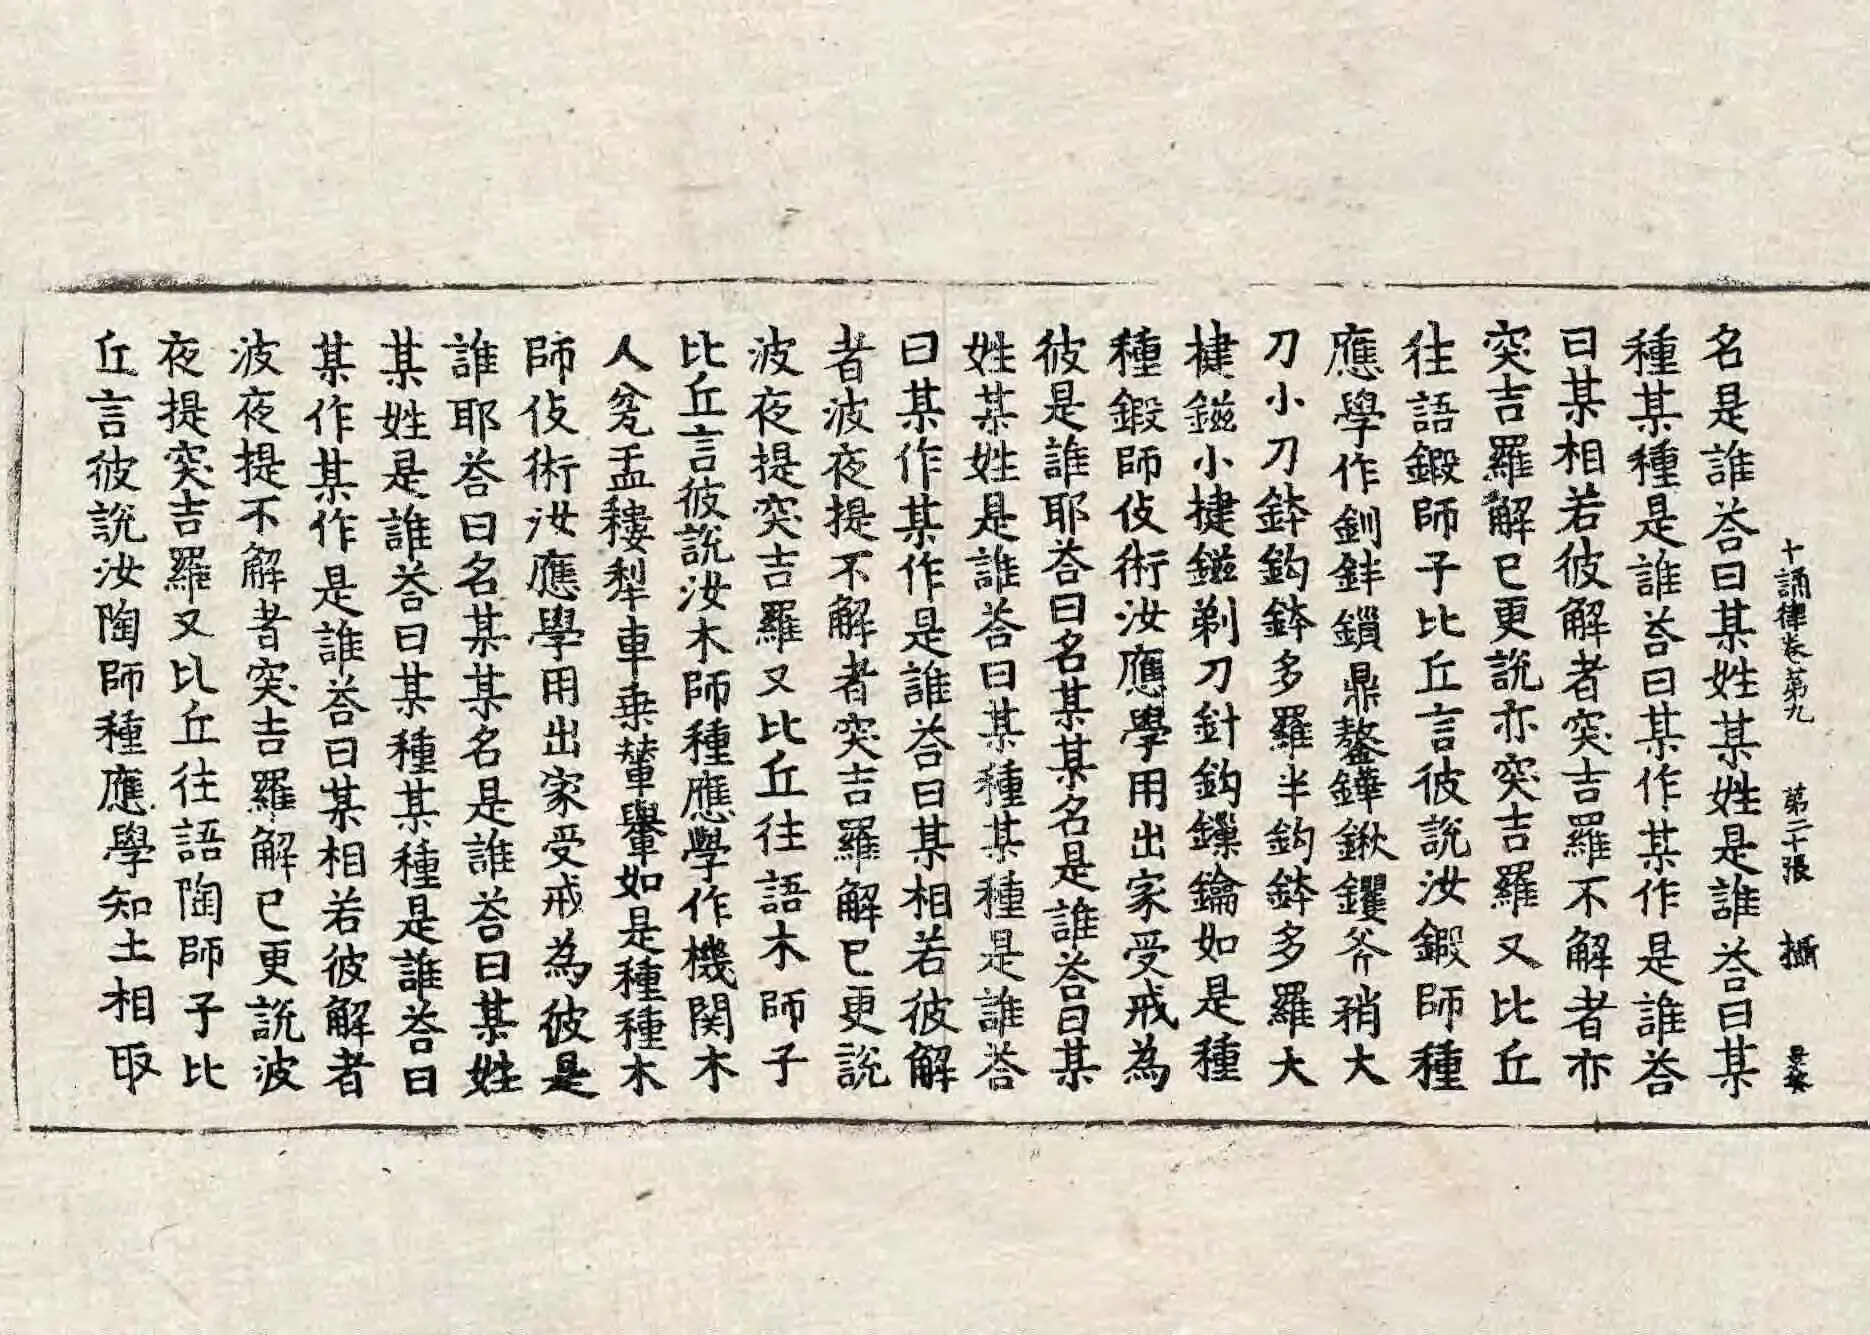 十誦律卷第九 第二十張 攝
名是誰荅曰某姓某姓是誰荅曰某
種某種是誰荅曰某作某作是誰荅
曰某相若彼解者突吉羅不解者亦
突吉羅解已更說亦突吉羅又比丘
往語鍛師子比丘言彼說汝鍛師種
應學作釧鉡鎖鼎鏊鏵鍬钁斧矟大
刀小刀鉢鉤鉢多羅半鉤鉢多羅大
揵鎡小揵鎡剃刀針鉤鏁鑰如是種
種鍛師伎術汝應學用出家受戒為
彼是誰耶荅曰名某某名是誰荅曰某
姓某姓是誰荅曰某種某種是誰荅
曰某作某作是誰荅曰某相若彼解
者波夜提不解者突吉羅解已更說
波夜提突吉羅又比丘往語木師子
比丘言彼說汝木師種應學作機関木
人瓫盂耬犁車乗輦轝如是種種木
師伎術汝應學用出家受戒為彼是
誰耶荅曰名某某名是誰荅曰某姓
某姓是誰荅曰某種某種是誰荅曰
某作某作是誰荅曰某相若彼解者
波夜提不解者突吉羅解已更說波
夜提突吉羅又比丘往語陶師子比
丘言彼說汝陶師種應學知土相取